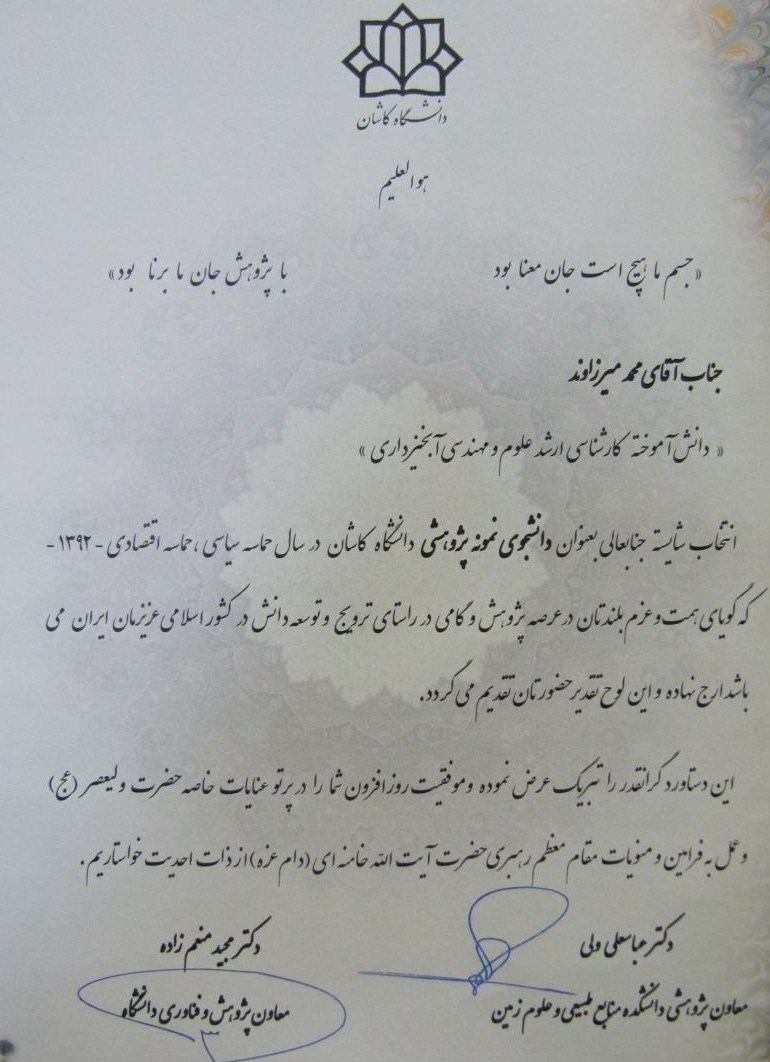 دانشگاه کاشان
هوالعلیم
« جسم ما هیچ است جان معنا بود با پژوهش جان ما برنا بود »
جناب آقای محمد میرزاوند
« دانش آموخته کارشناسی ارشد علوم و مهندسی آبخیزداری »
انتخاب شایسته جنابعالی بعنوان دانشجوی نمونه پژوهشی دانشگاه کاشان در سال حماسه سیاسی ، حماسه اقتصادی - ۱۳۹۲ -
که گویای همت و عزم بلندتان در عرصه پژوهش و گامی در راستای ترویج و توسعه دانش در کشور اسلامی عزیزمان ایران می
باشد ارج نهاده و این لوح تقدیر حضورتان تقدیم می گردد.
این دستاورد گرانقدر را تبریک عرض نموده و موفقیت روز افزون شما را در پرتو عنایات خاصه حضرت ولیعصر (عج)
و عمل به فرامین و منویات مقام معظم رهبری حضرت آیت الله خامنه ای (دام عزه) از ذات احدیت خواستاریم .
دکتر عباسعلی ولی دکتر مجید منعم زاده
معاون پژوهشی دانشکده منابع طبیعی و علوم زمین معاون پژوهش و فناوری دانشگاه